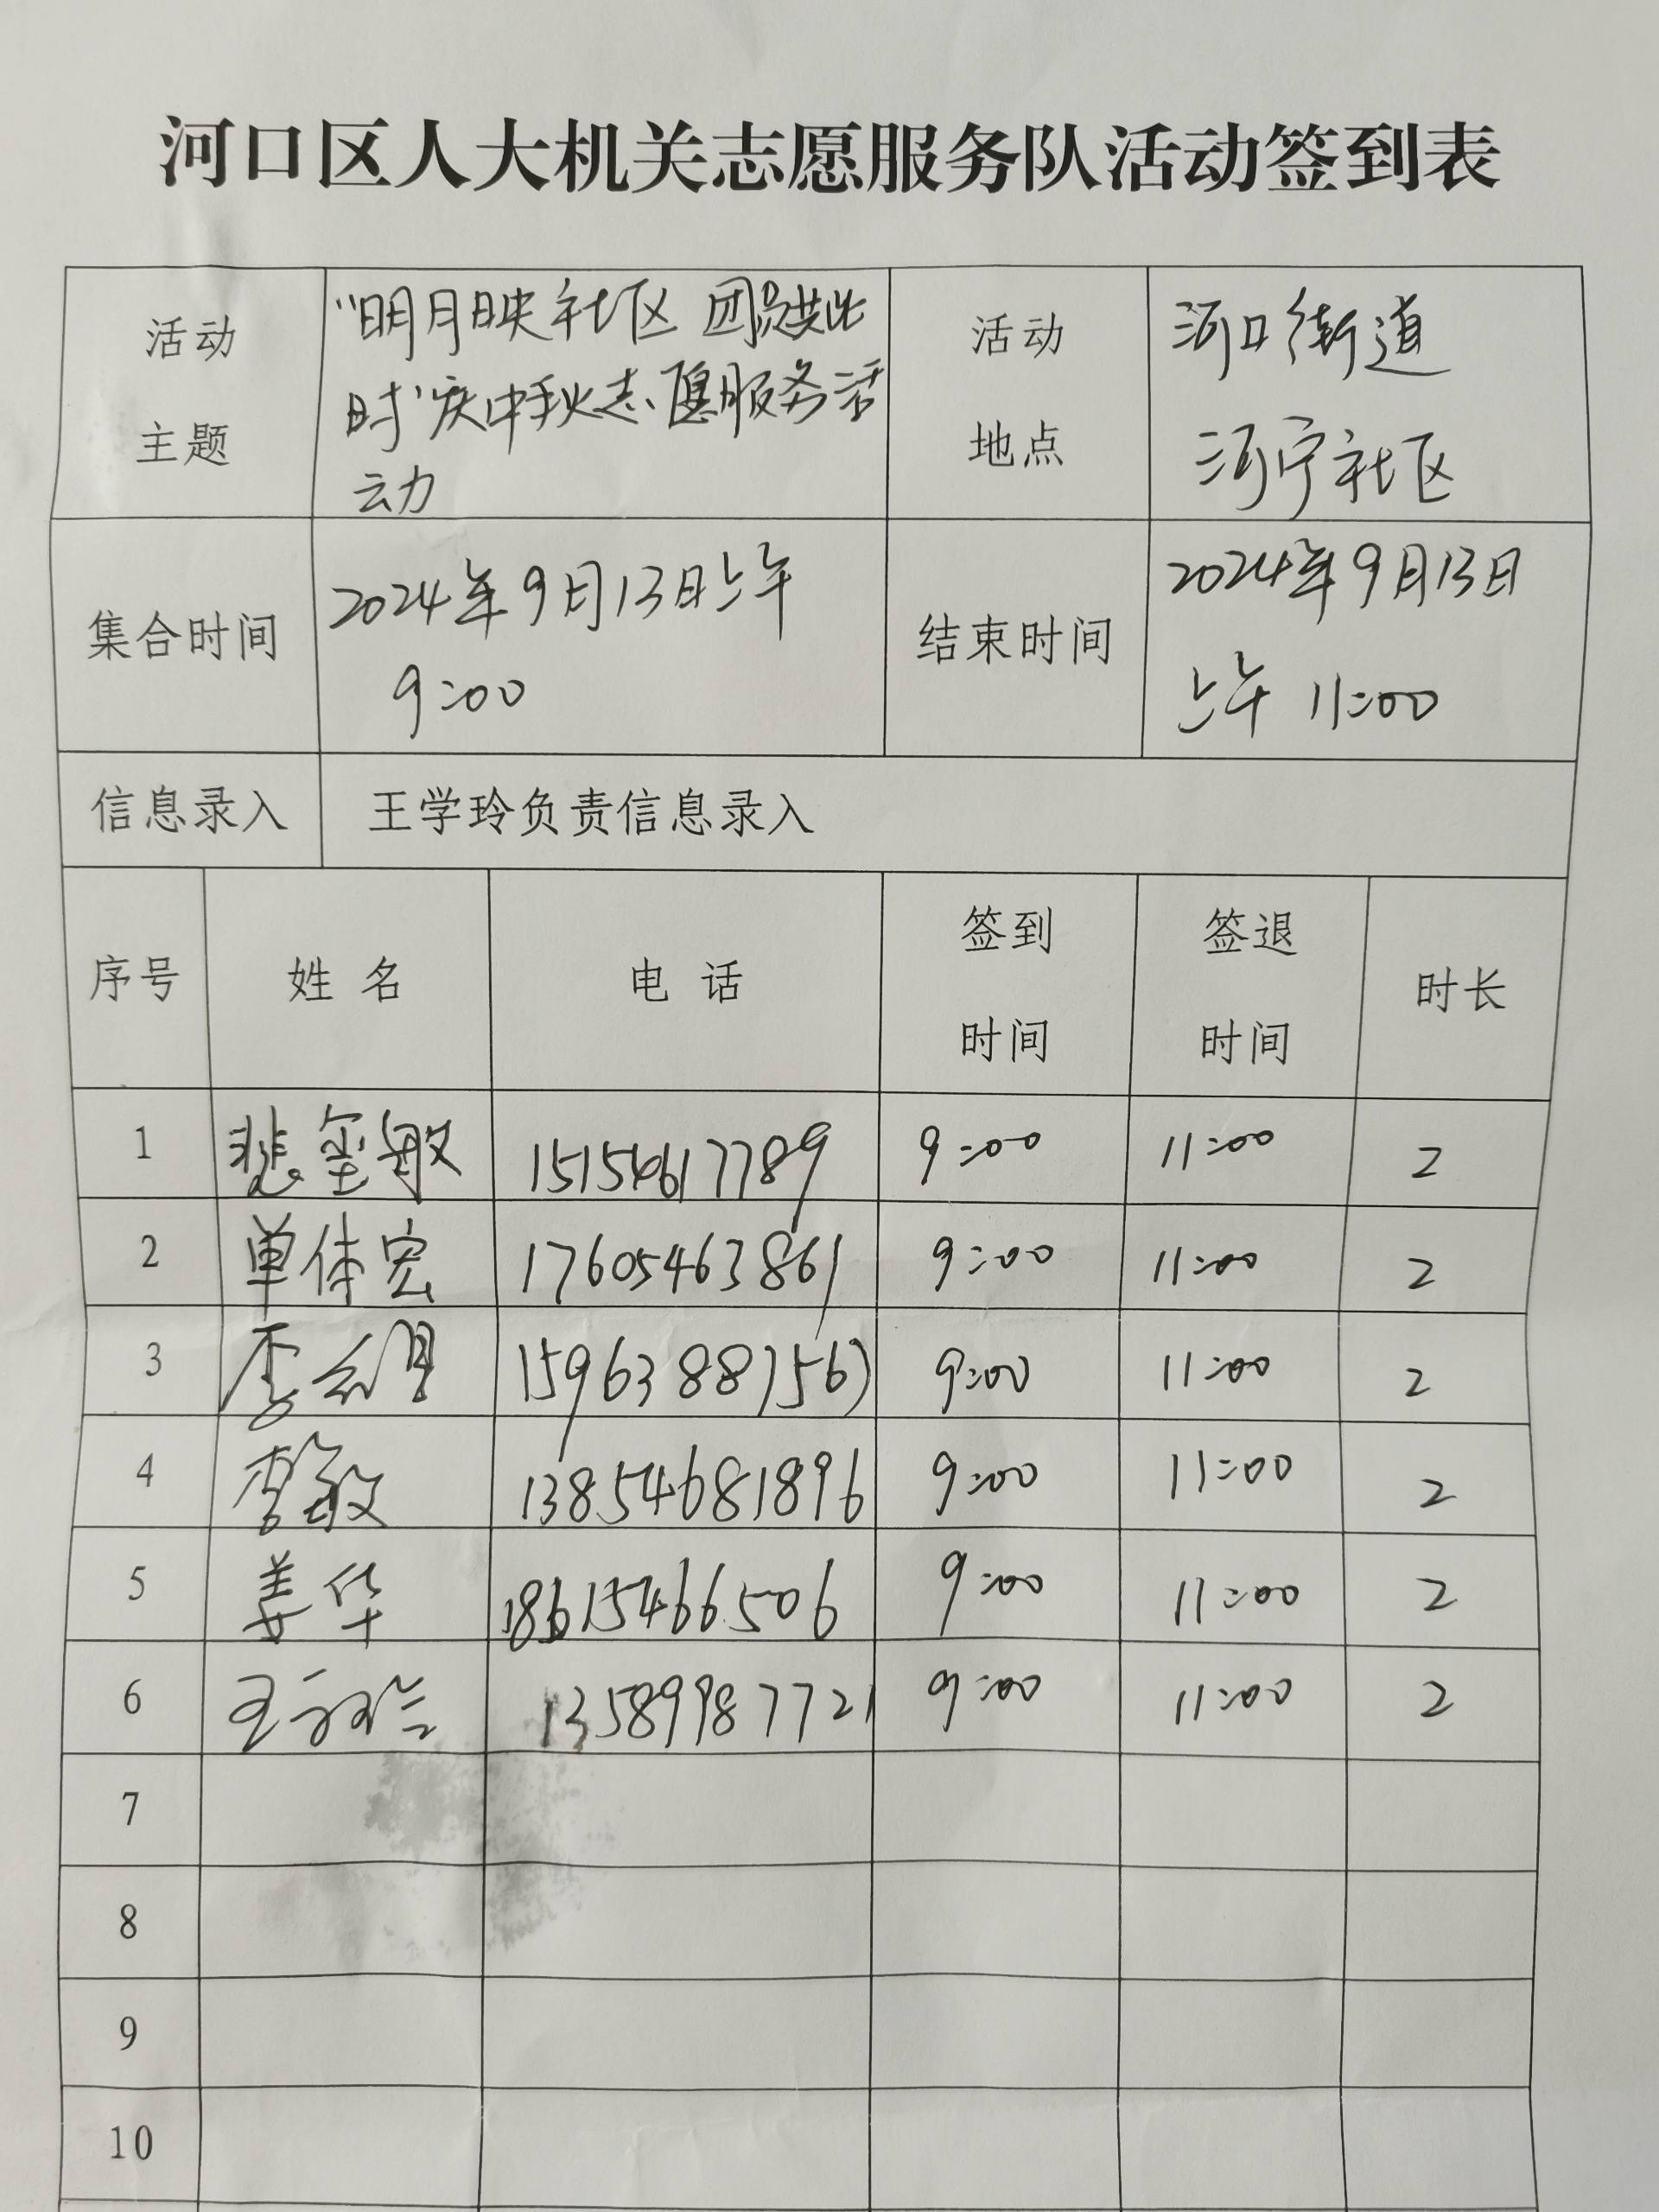 河口区人大机关志愿服务队活动签到表
活动
主题
“明月映社区 团员共此
时”庆中秋志愿服务活
动
活动
地点
河口街道
河宁社区
集合时间
2024年9月13日上午
9:00
结束时间
2024年9月13日
上午 11:00
信息录入
王学玲负责信息录入
序号
姓 名
电 话
签到
时间
签退
时间
时长
1
15154617789
9:00
11:00
2
2
单体宏
17605463861
9:00
11:00
2
3
9:00
11:00
2
4
李敏
13854681896
9:00
11:00
2
5
姜华
18615466506
9:00
11:00
2
6
13589987721
9:00
11:00
2
7
8
9
10